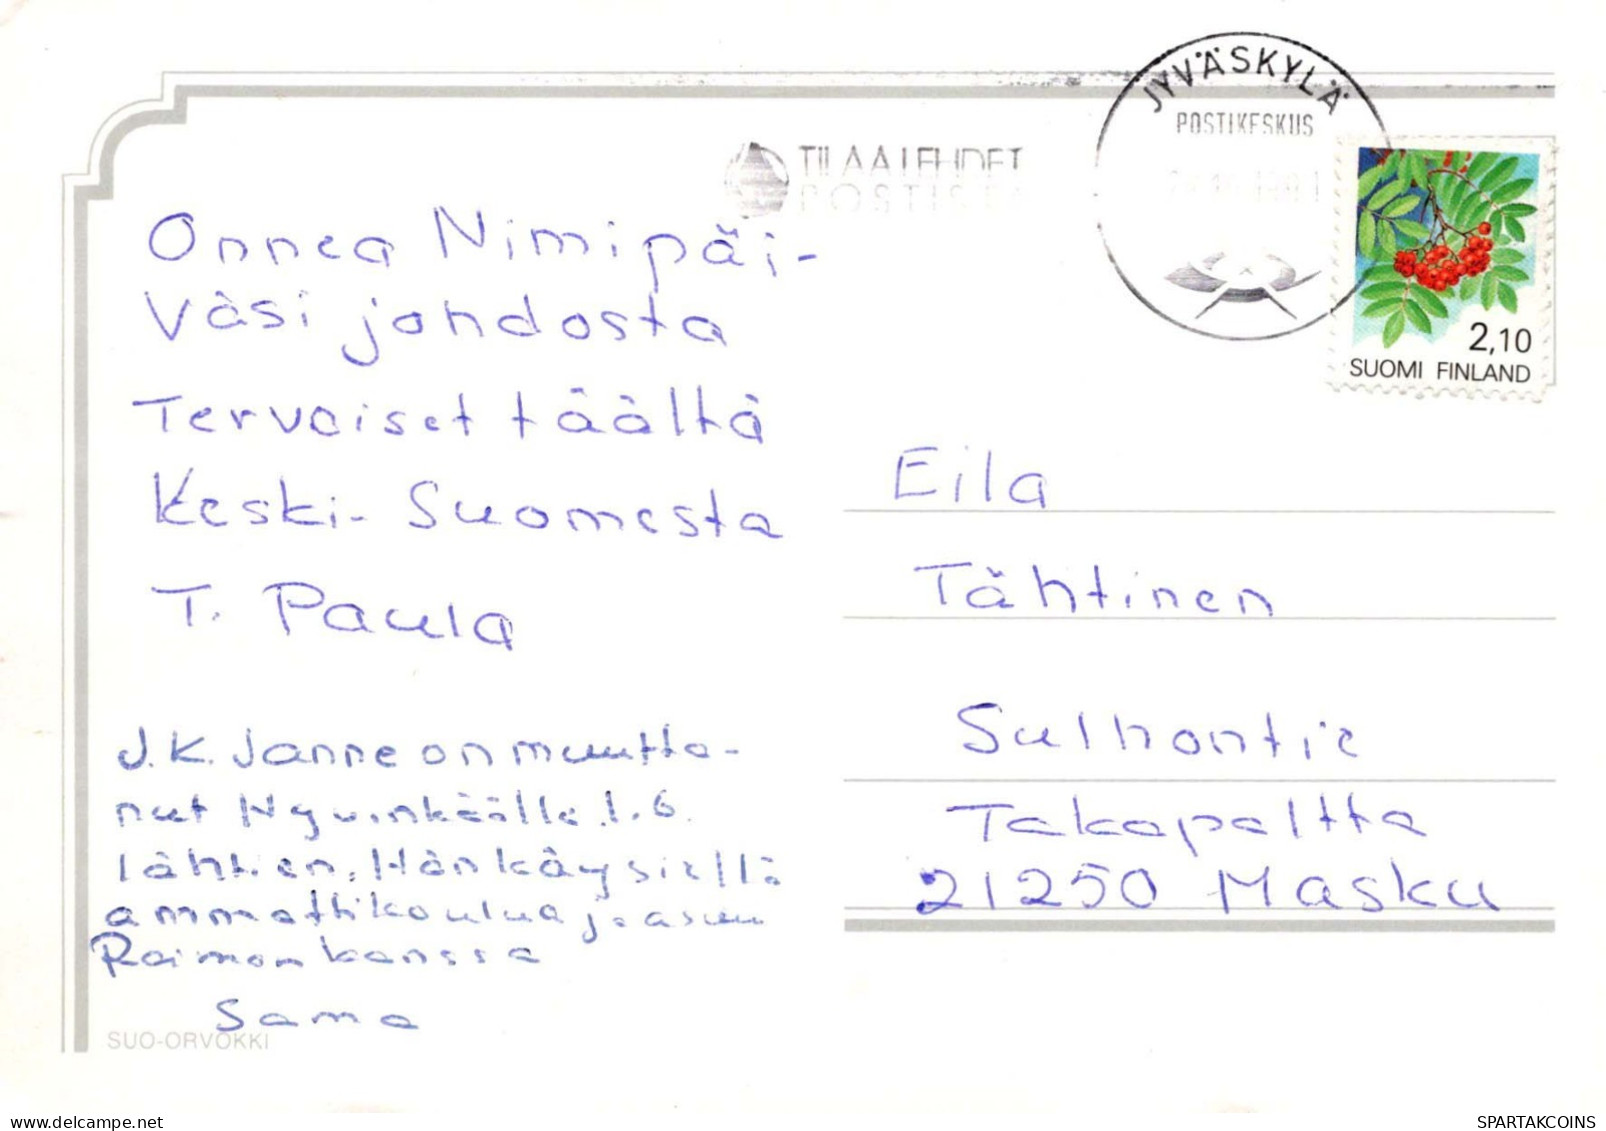 JYVÄSKYLÄ
POSTIKESKUS
TILAA LEHDET
POSTISTA
2,10
SUOMI FINLAND
Onnea Nimipäi-
väsi johdosta
Tervaiset täältä
Keski-Suomesta
T. Paula
J.K. Janne on muutta-
nut Hyvinkäälle 1.6.
lähtien. Hän käy siellä
ammattikoulua ja asuu
Raimon kanssa
Sama
Eila
Tähtinen
Sulhontie
Takapaltta
21250 Masku
SUO-ORVOKKI
delcampe.net
SPARTAKCOINS